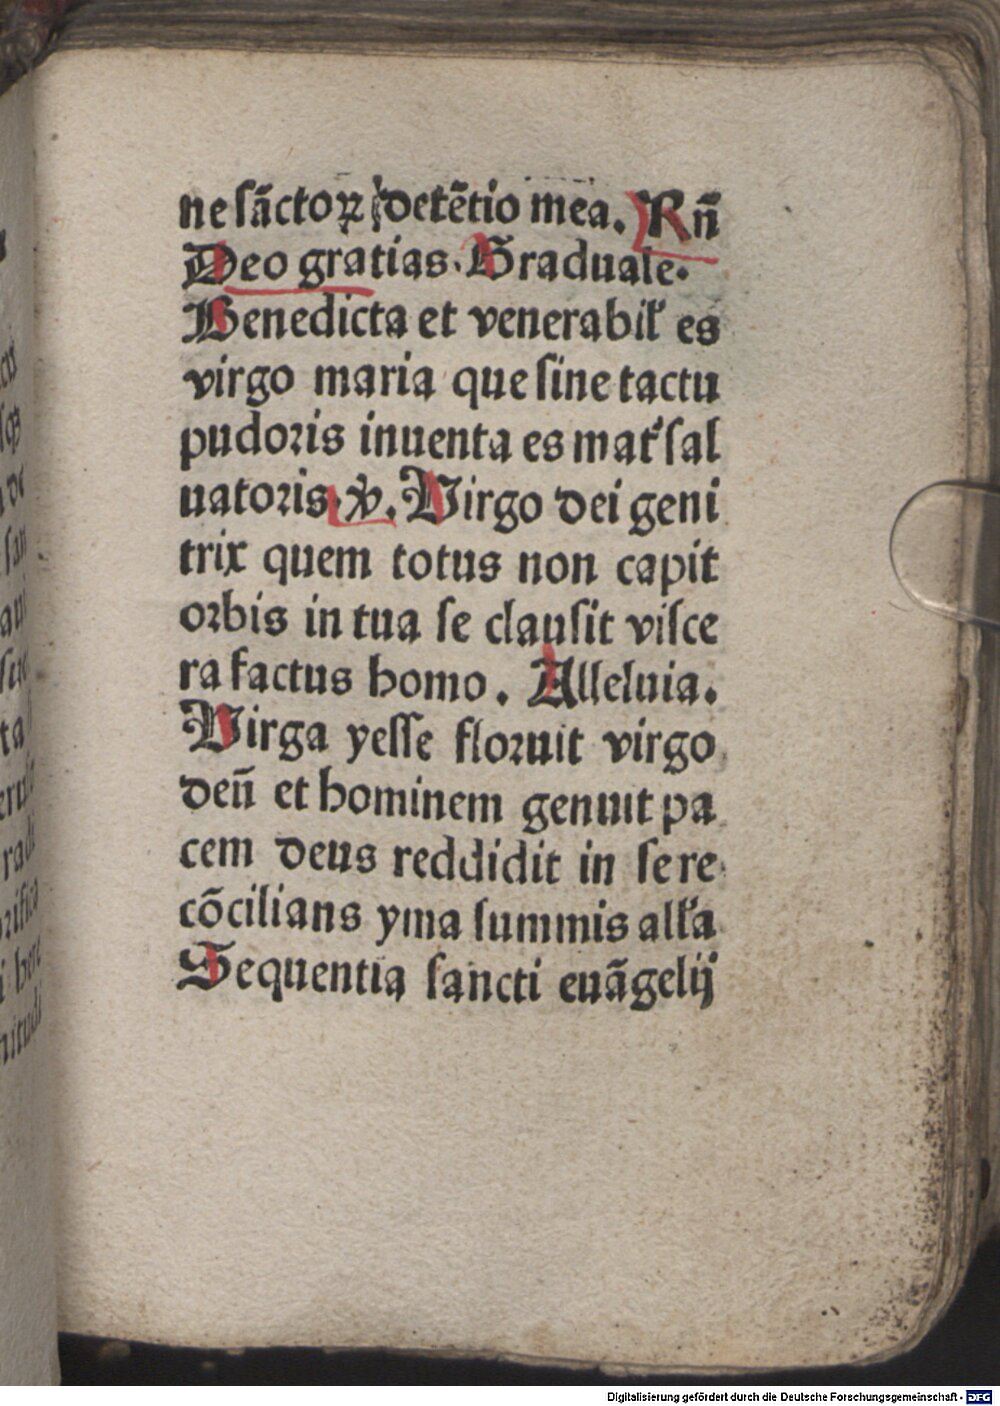 ne sãctoꝝ detẽtio mea. Rñ
Deo gratias. Graduale.
Benedicta et venerabil' es
virgo maria que sine tactu
pudoris inuenta es mat' sal
uatoris. ꝟ. Virgo dei geni
trix quem totus non capit
orbis in tua se clausit visce
ra factus homo. Alleluia.
Virga yesse floruit virgo
deũ et hominem genuit pa
cem deus reddidit in se re
cõcilians yma summis all'a
Sequentia sancti euãgelij
Digitalisierung gefördert durch die Deutsche Forschungsgemeinschaft - DFG